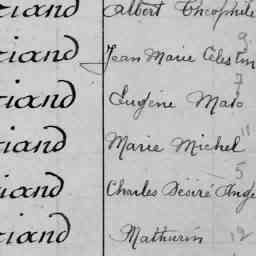 riand Albert Théophile
9
riand Jean Marie Célestin
7
riand Eugène Marie
riand Marie Michel 11
5
riand Charles Désiré Ange
riand Mathurin 12